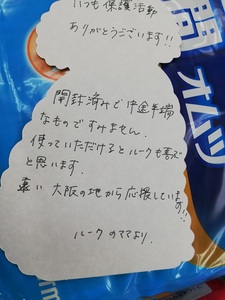 いつも保護活動
ありがとうございます!!
開封済みで中途半端
なものですみません。
使っていただけるとルークも喜ぶ
と思います。
遠い大阪の地から応援しています!!
ルークのママより.
間オムツ